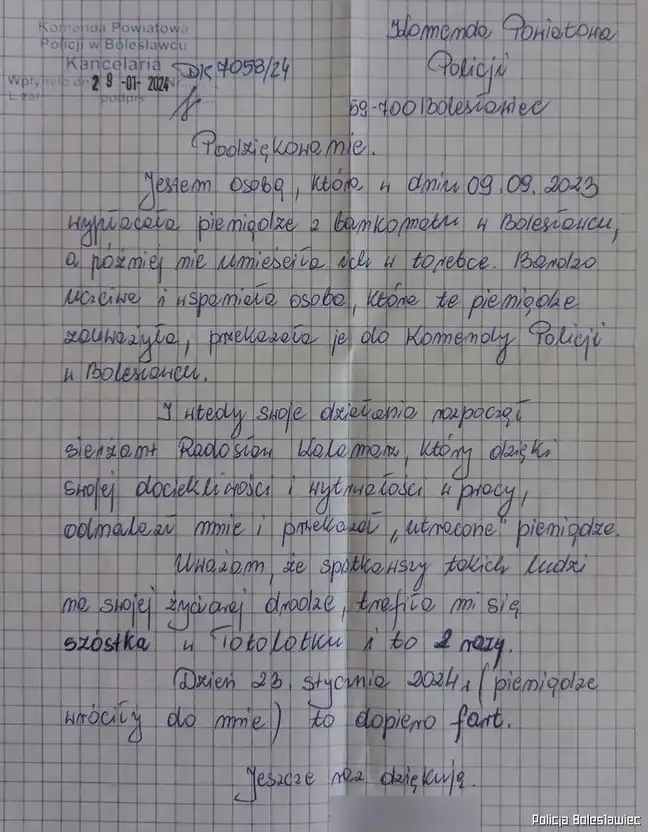 Komenda Powiatowa
Policji w Bolesławcu
Kancelaria
Wpłynęło dn. 29 -01- 2024
L.zał. podpis
DK 7058/24
Komenda Powiatowa
Policji
59-700 Bolesławiec
Podziękowanie.
Jestem osobą, która w dniu 09.09.2023
wypłacała pieniądze z bankomatu w Bolesławcu,
a później nie umieściła ich w torebce. Bardzo
uczciwa i wspaniała osoba, która te pieniądze
zauważyła, przekazała je do Komendy Policji
w Bolesławcu.
I wtedy swoje działania rozpoczął
sierżant Radosław, który dzięki
swojej dociekliwości i wytrwałości w pracy,
odnalazł mnie i przekazał „utracone" pieniądze.
Uważam, że spotkawszy takich ludzi
na swojej życiowej drodze, trafiła mi się
szóstka w Totolotku i to 2 razy.
Dzień 23 stycznia 2024r (pieniądze
wróciły do mnie) to dopiero fart.
Jeszcze raz dziękuję.
Policja Bolesławiec